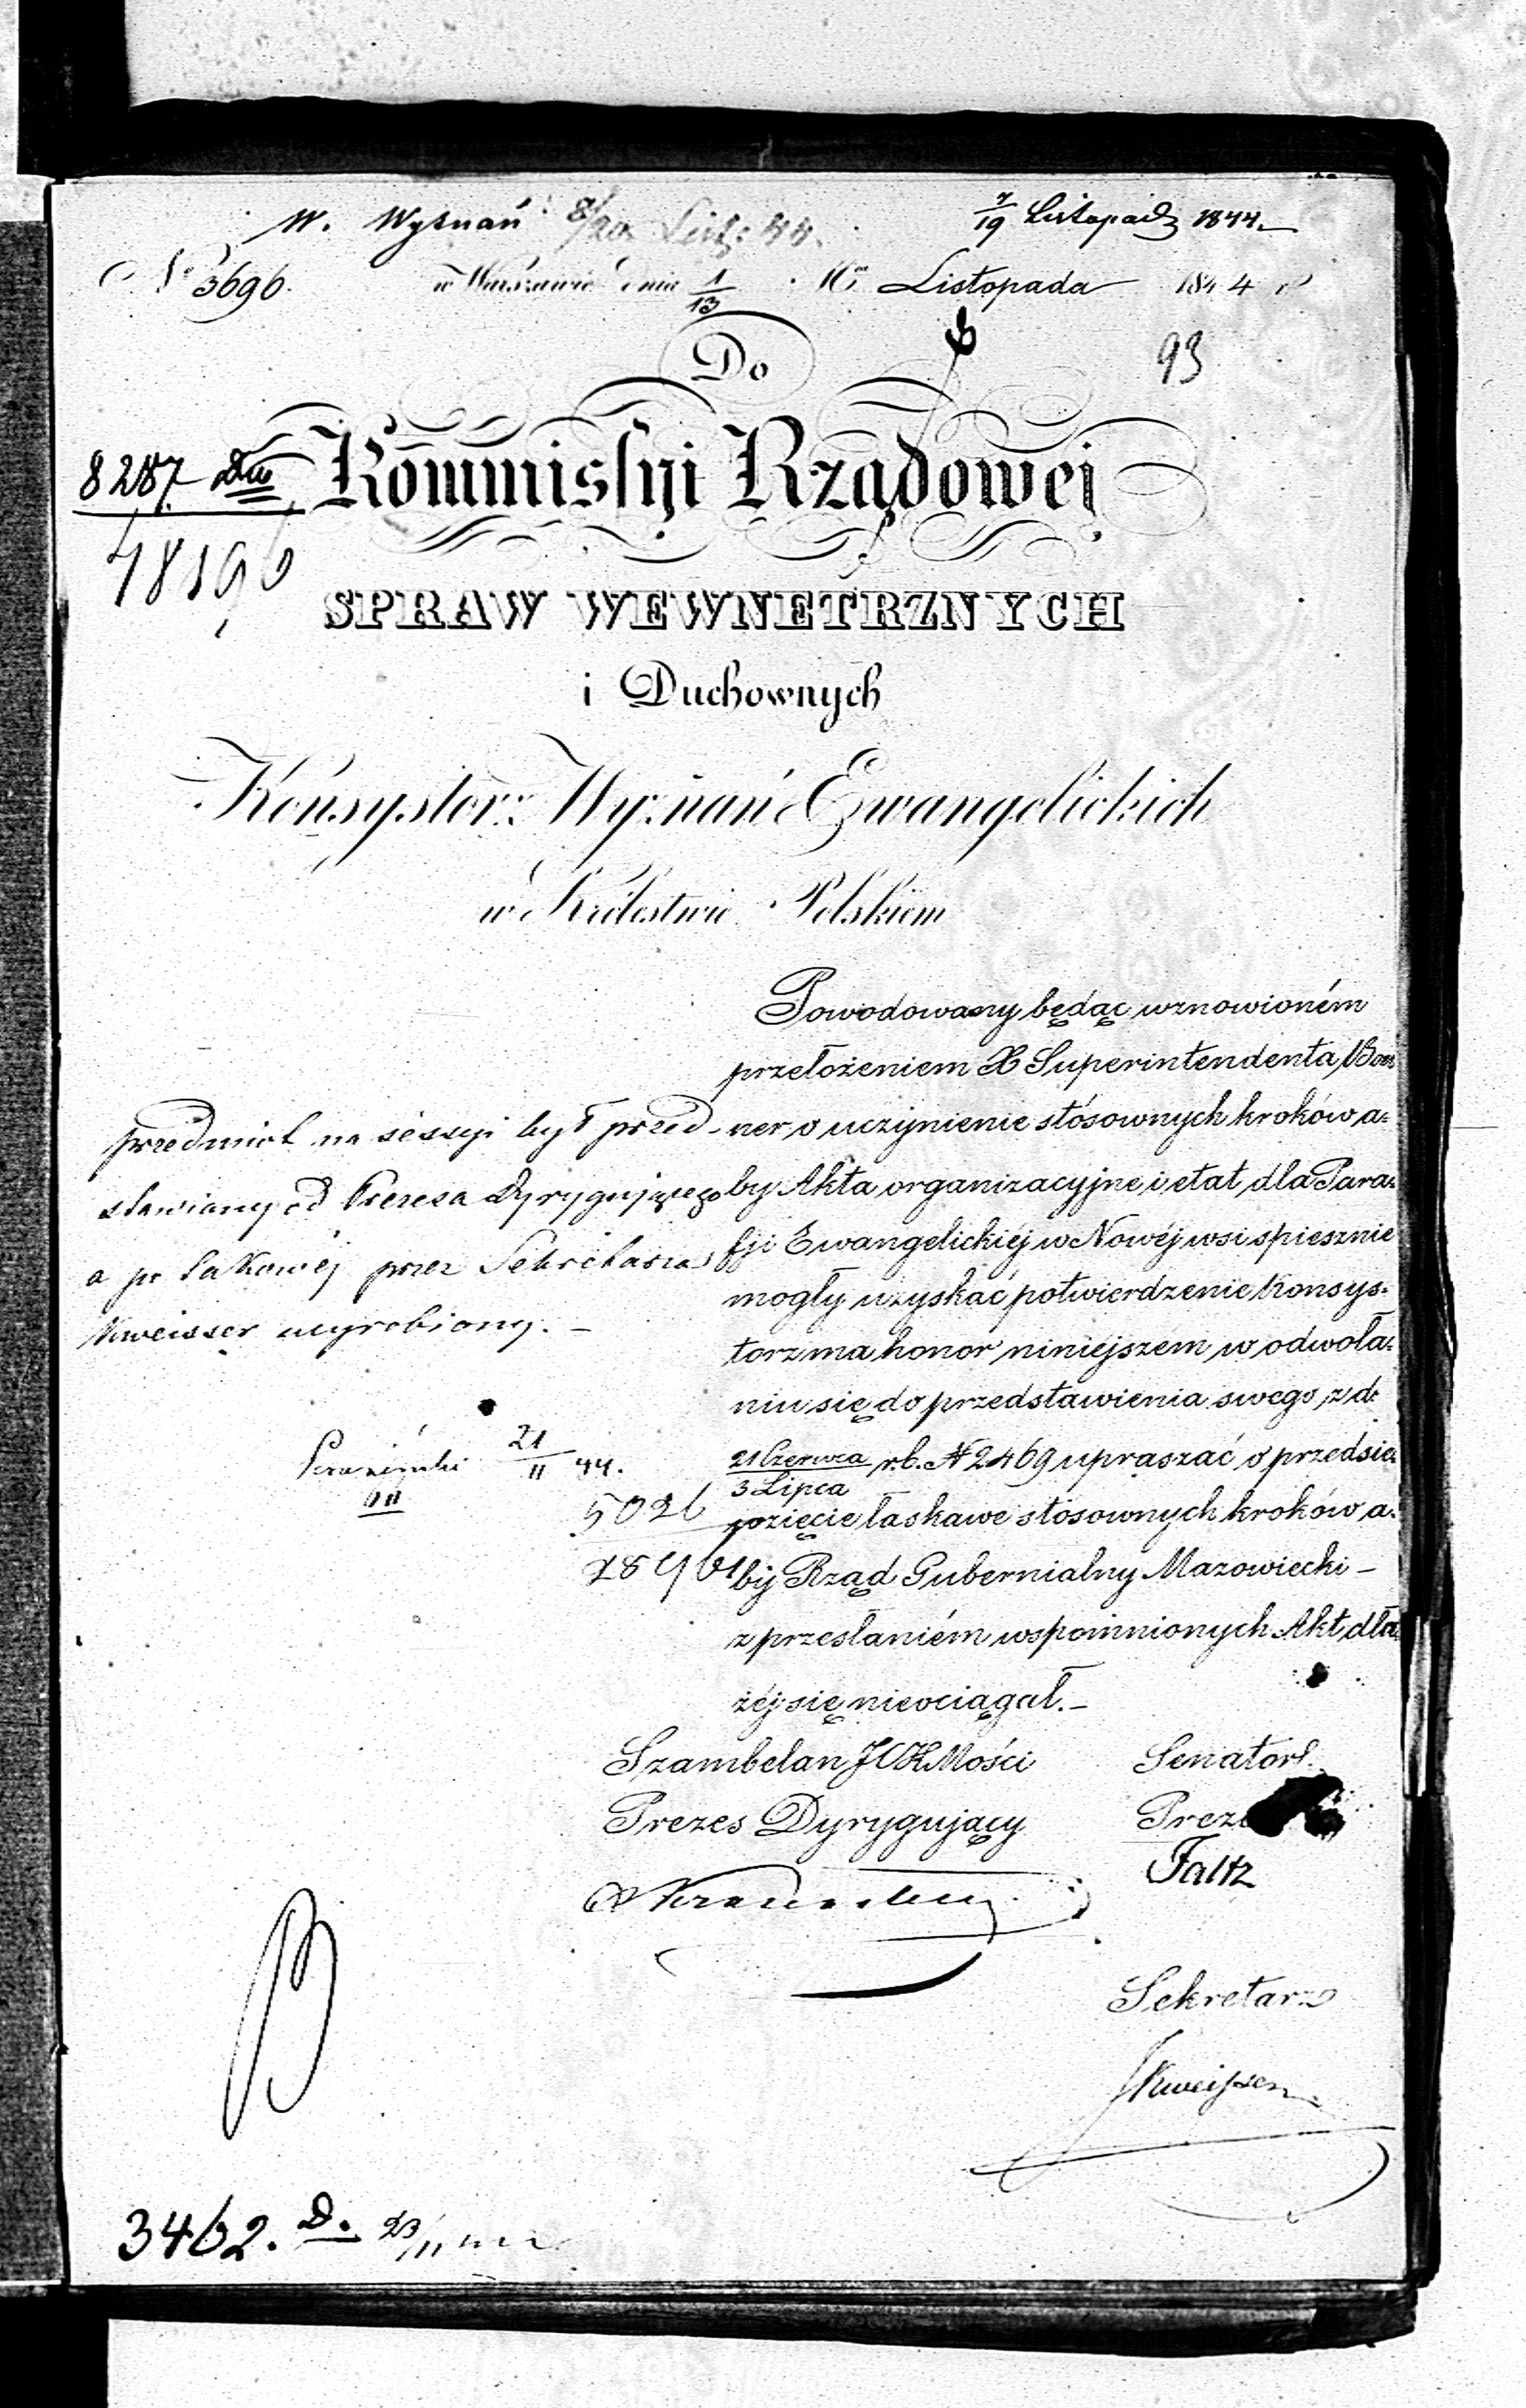 W. Wyznań 8/20 List: 44.
7/19 Listopada 1844.
No 3696.
w Warszawie dnia 1/13 Mca Listopada 1844 r
93
Do
8287 Dw
Kommissyi Rządowej
18196
SPRAW WEWNETRZNYCH
i Duchownych
Konsystorz Wyznań Ewangelickich
w Królestwie Polskiem
Powodowany będąc wznowioném
przełożeniem X Superintendenta Boer
ner o uczynienie stósownych kroków a=
by Akta organizacyjne i etat dla Para=
fji Ewangelickiéj w Nowéj wsi spiesznie
mogły uzyskać potwierdzenie Konsys=
torz ma honor niniejszem w odwoła=
niu się do przedstawienia swego z d:
21 Czerwca / 3 Lipca r.b. N 2469 upraszać o przedsie=
wzięcie łaskawe stósownych kroków a=
by Rząd Gubernialny Mazowiecki –
z przesłaniém wspomnionych Akt dłu
żéj się nieociągał. –
przedmiot na sessyi był przed=
stawiony od Prezesa Dyrygującego
a po takowéj przez Sekretarza
Kweisser wyrobiony. –
21/11 44.
5026
18901
Szambelan JCK Mości
Prezes Dyrygujący
Senator
Prez
Faltz
Sekretarz
JKweisser
3462. D. 23/11